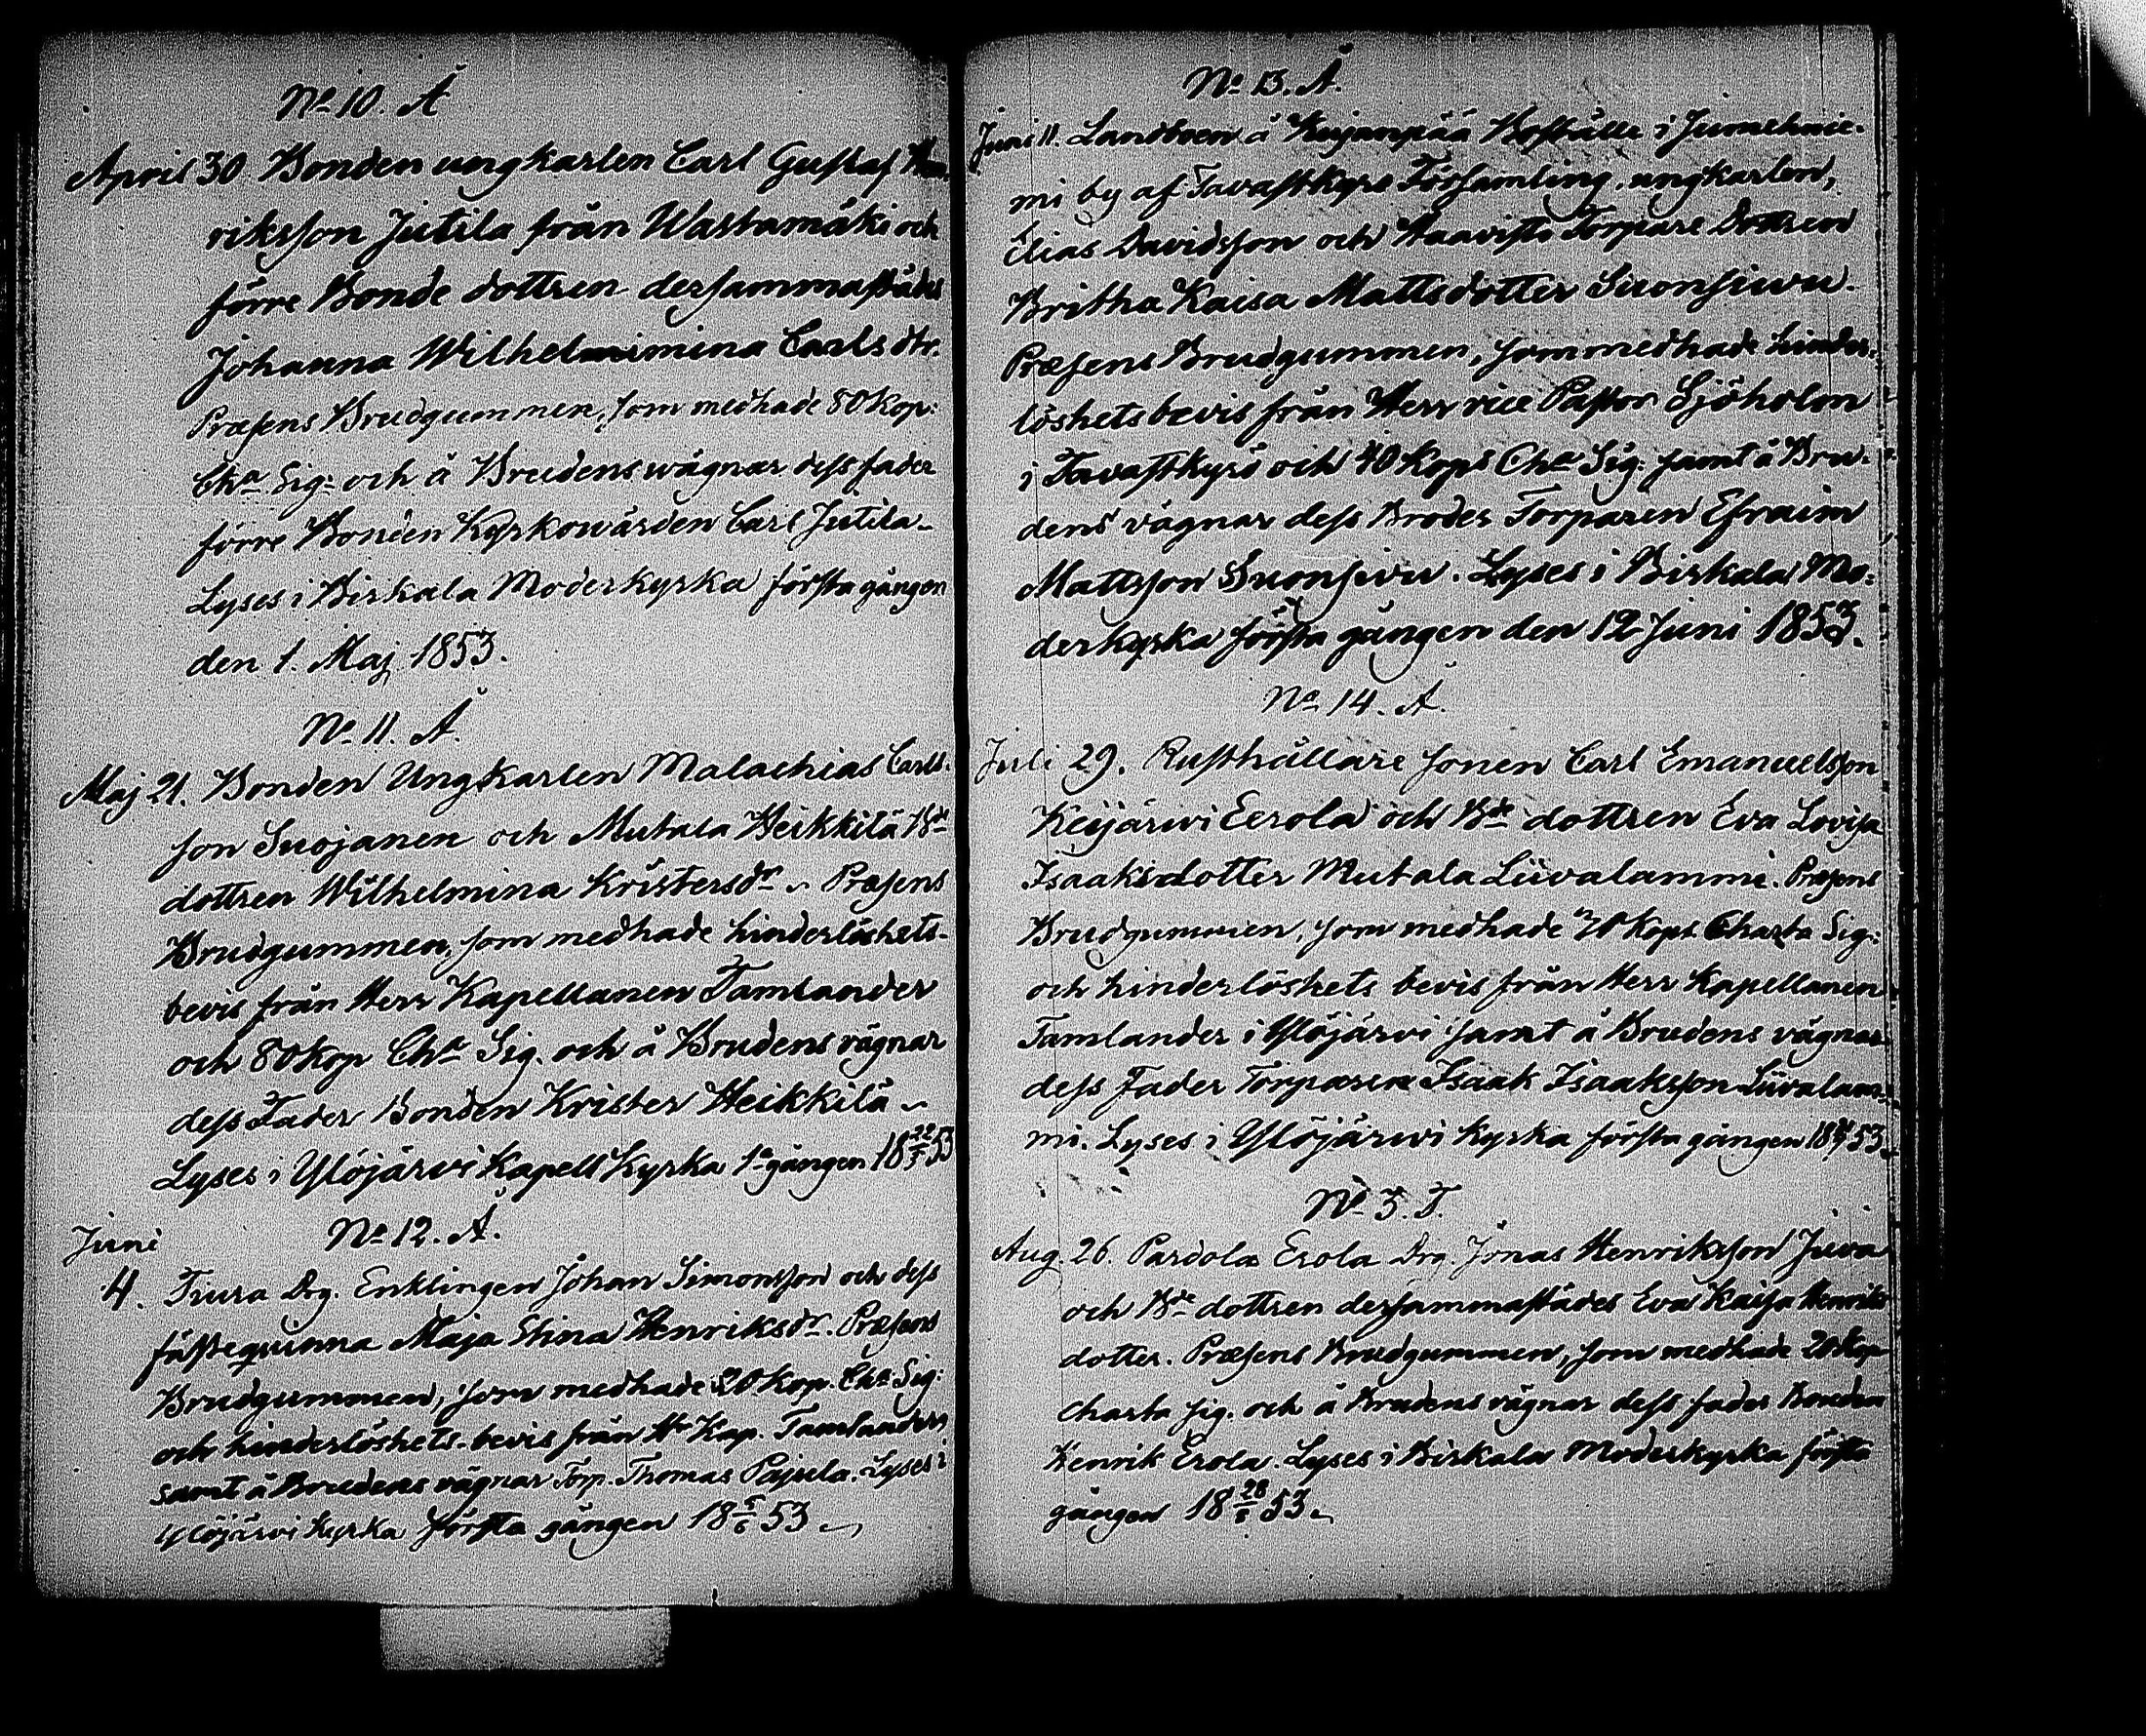 No 10. Å
April 30 Bonden ungkarlen Carl Gustaf Hen-
riksson Jutila från Wastamäki och
förre Bonde dottren dersammastädes
Johanna Wilhelmimina Carlsdtr.
Præsens Brudgummen, som medhade 80 kop:
Cha Sig: och å Brudens wägnar dess fader
förre Bonden Kyrkowärden Carl Jutila
Lyses i Birkala Moderkyrka första gången
den 1. Maj 1853.
No 11. Å.
Maj 21. Bonden Ungkarlen Malachias Carls-
son Suojanen och Mutala Heikkilä Bde
dottren Wilhelmina Kristersdr Præsens
Brudgummen, som medhade hinderlöshets-
bevis från Herr Kapellanen Tamlander
och 80 kop Cha Sig. och å Brudens vägnar
dess Fader Bonden Krister Heikkilä
Lyses i Ylöjärvi Kapell Kyrka 1a gången 18 22/5 53
No 12. Å.
Juni
4. Trura Drg. Enklingen Johan Simonsson och dess
fästeqvinna Maja Stina Henriksdr. Præsens
Brudgummen, som medhade 20 kop. Cha Sig:
och hinderlöshets-bevis från Hr Kap. Tamlander,
samt å Brudens vägnar Torp. Thomas Pajula. Lyses i
Ylöjärvi kyrka första gången 18 5/6 53
No 13. Å.
Juni 11. Landboen å Kujanpää Boställe i Jumehnie-
mi by af Tavastkyro Församling, ungkarlen,
Elias Davidsson och Haavisto Torpare Dottren
Britha Kaisa Mattsdotter Suonsiwu.
Præsens Brudgummen, som medhade hinder-
löshets bevis från Herr vice Pastor Sjöholm
i Tavastkyrö och 40 kops Cha Sig: samt å Bru-
dens vägnar dess Broder Torparen Efraim
Mattsson Suonsivu. Lyses i Birkala Mo-
derkyrka första gången den 12 Juni 1853.
No 14. Å.
Juli 29. Rusthållare sonen Carl Emanuelsson
Keijärvi Eerola och Bde dottren Eva Lovisa
Isaaksdotter Mutala Liivalammi. Præsens
Brudgummen, som medhade 20 kops Charta Sig:
och hinderlöshets bevis från Herr Kapellanen
Tamlander i Ylöjärvi samt å Brudens vägnar
dess Fader Torparen Isaak Isaaksson Liivalam-
mi. Lyses i Ylöjärvi kyrka första gången 18 53
No 3. T.
Aug. 26. Pardola Erola Drg. Jonas Henriksson Juva
och Bde dottren dersammastädes Eva Kaisa Henriks
dotter. Præsens Brudgummen, som medhade 20 kop
charta sig. och å Brudens vägnar dess fader Bonden
Henrik Erola. Lyses i Birkala Moderkyrka första
gången 18 28/8 53